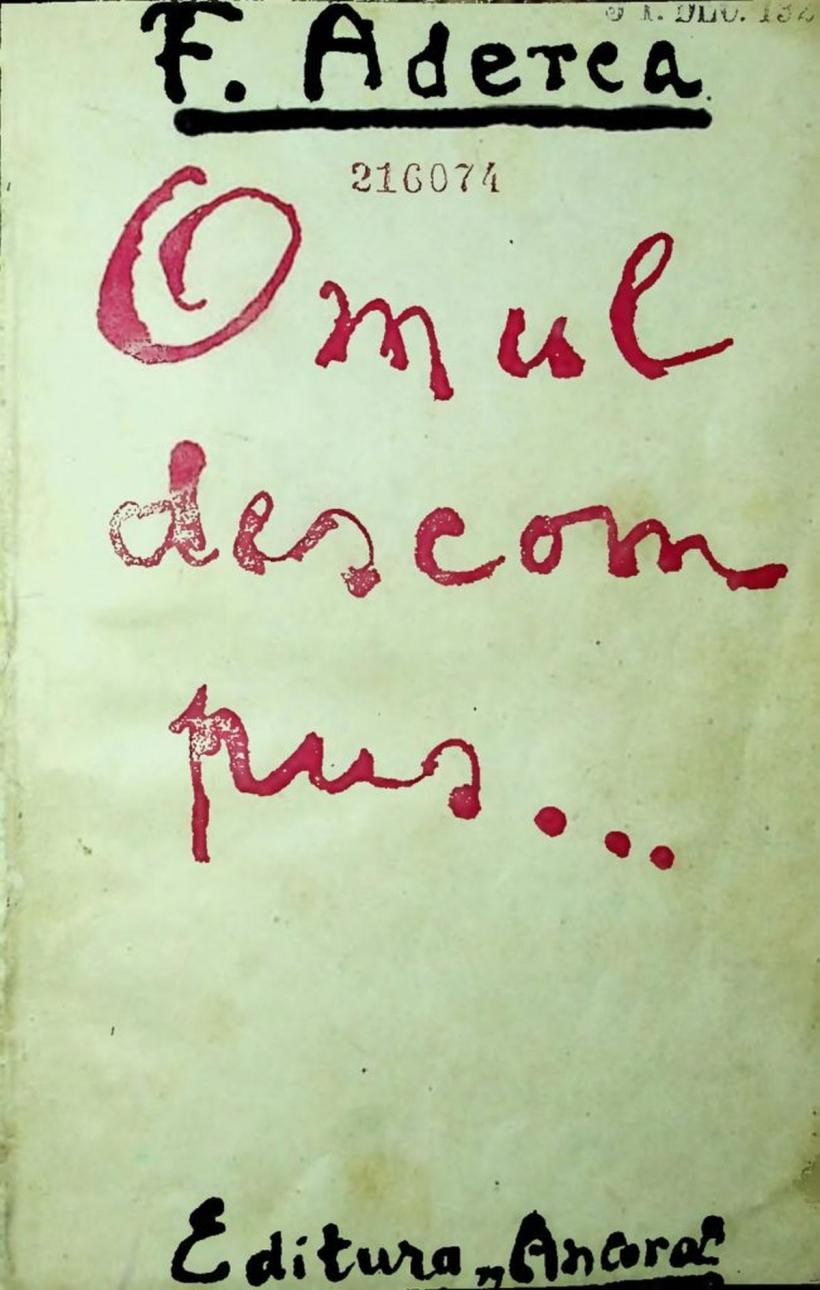 F. Aderca
216074
Omul
descom
pus...
Editura „Ancora”